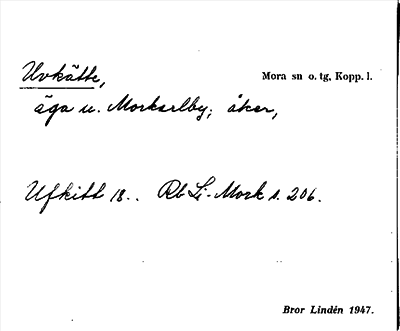 Uvkätte,
Mora sn o. tg, Kopp. l.
äga u. Morkarlby; åker,
Ufkitt 18.. Rb Li-Mork s. 206.
Bror Lindén 1947.